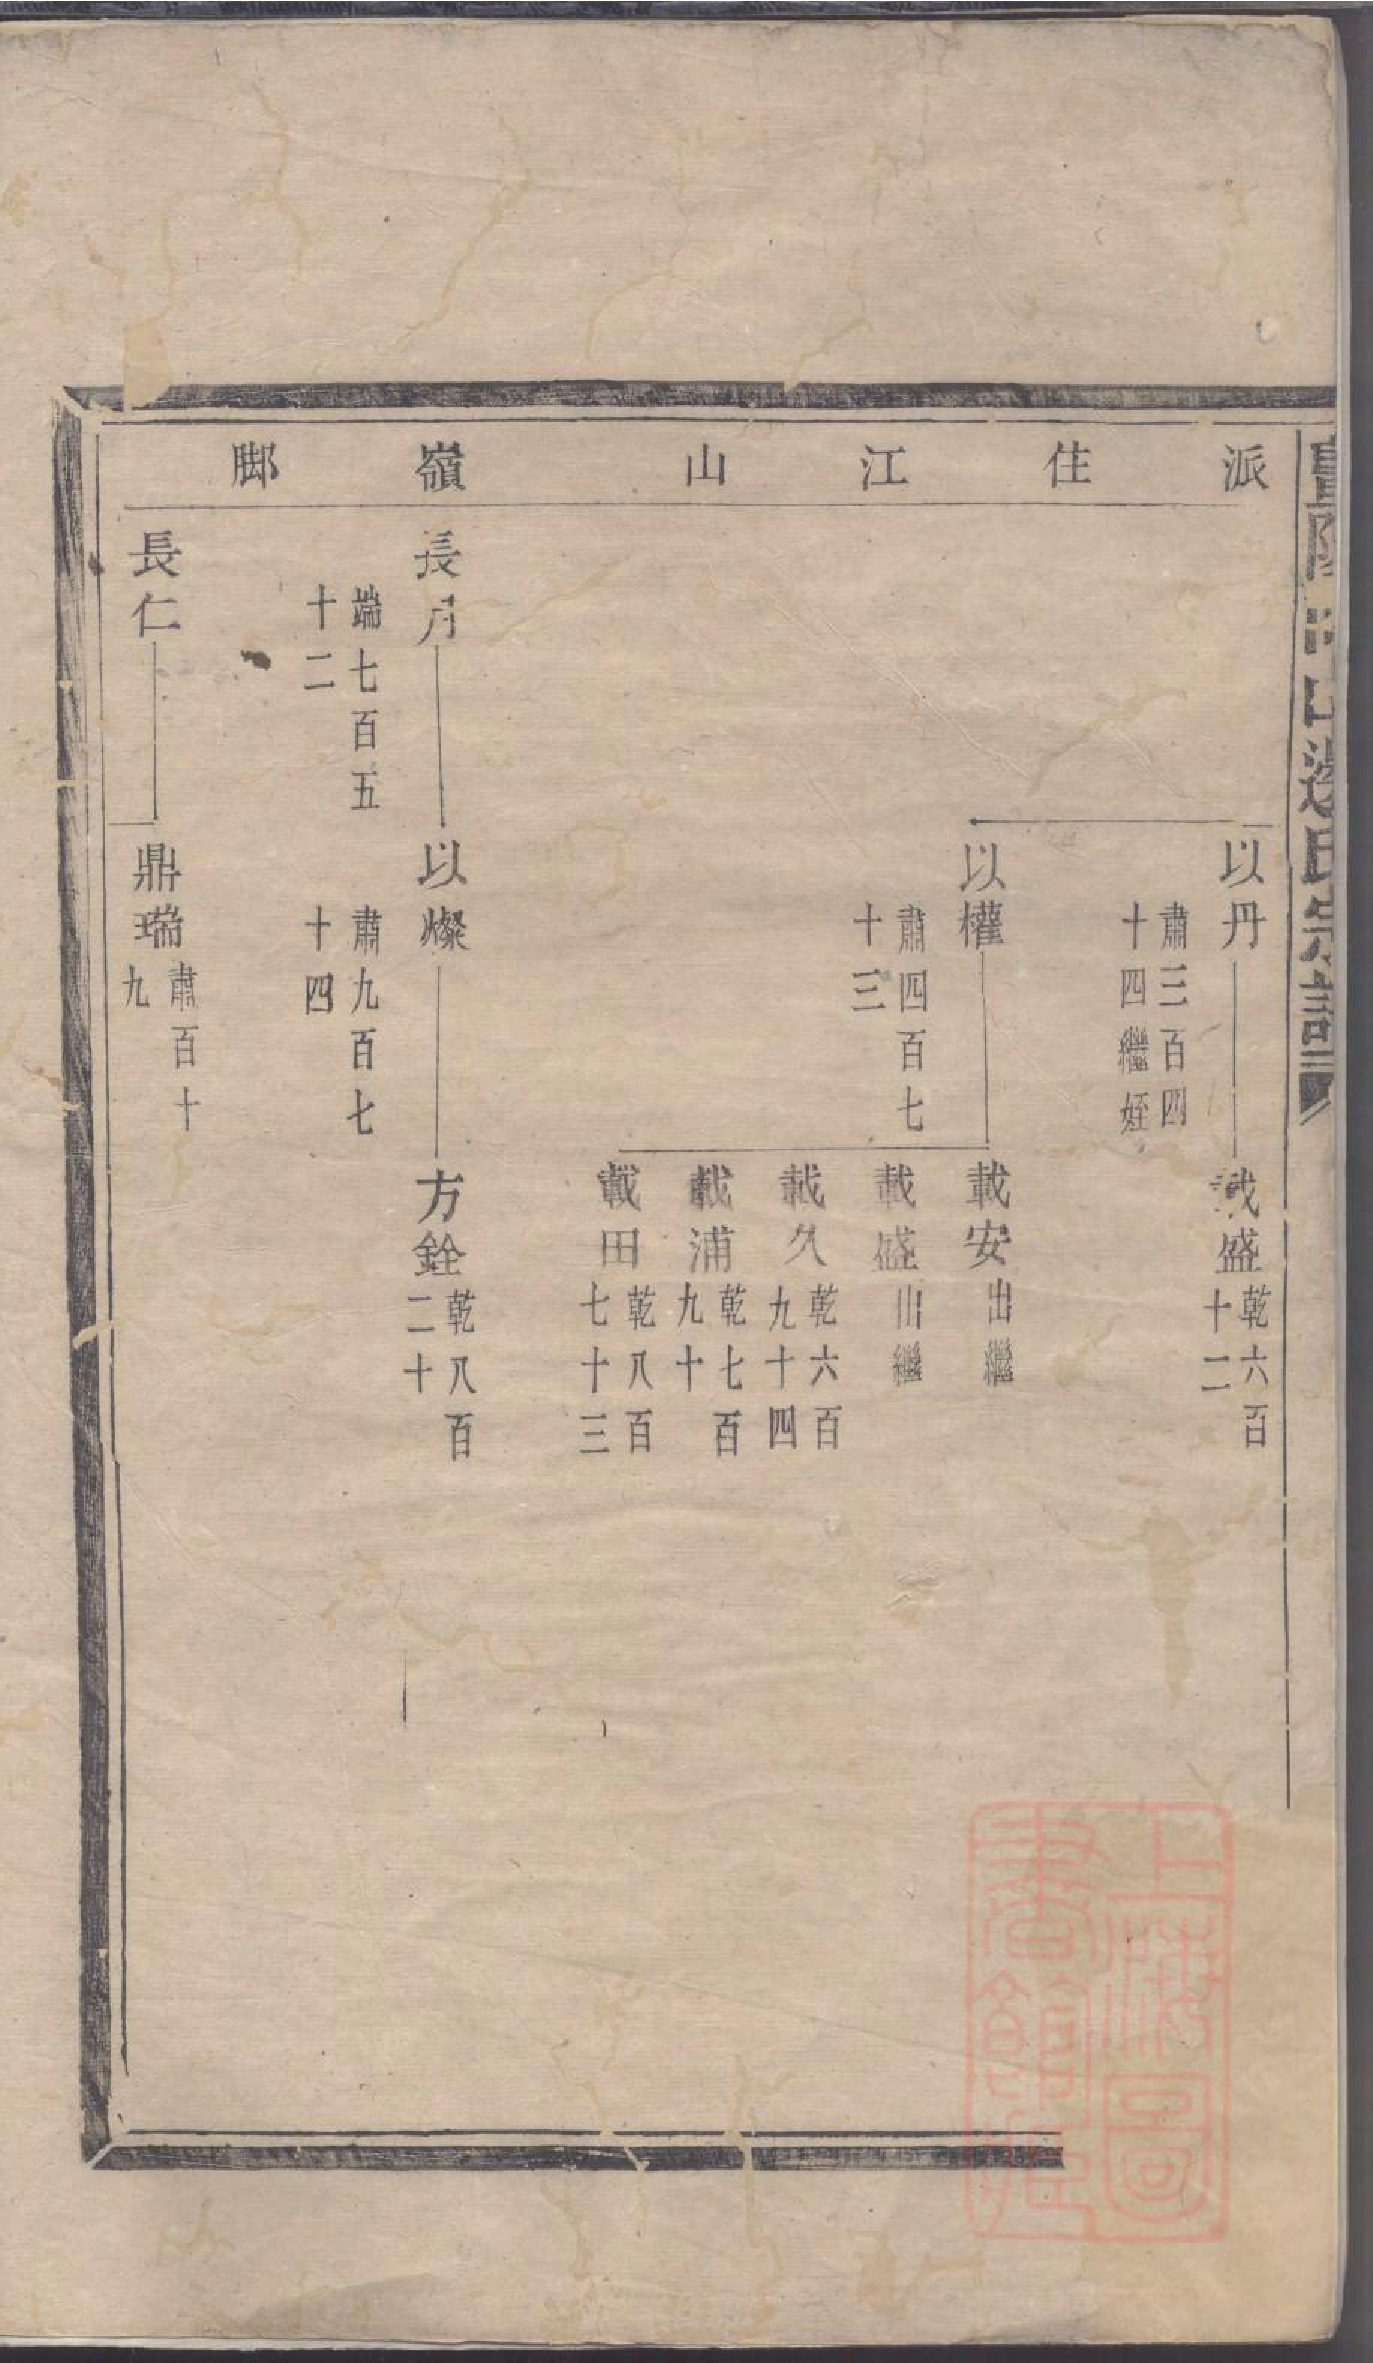 派住江山嶺脚
邊氏宗譜
以丹
肅三百四
十四繼姪
盛
乾六百
十二
以權
肅四百七
十三
載安
出繼
載盛
出繼
載久
乾六百
九十四
載浦
乾七百
九十
載田
乾八百
七十三
長月
端七百五
十二
以燦
肅九百七
十四
方銓
乾八百
二十
長仁
鼎瑞
肅百十
九
上海圖
書館藏